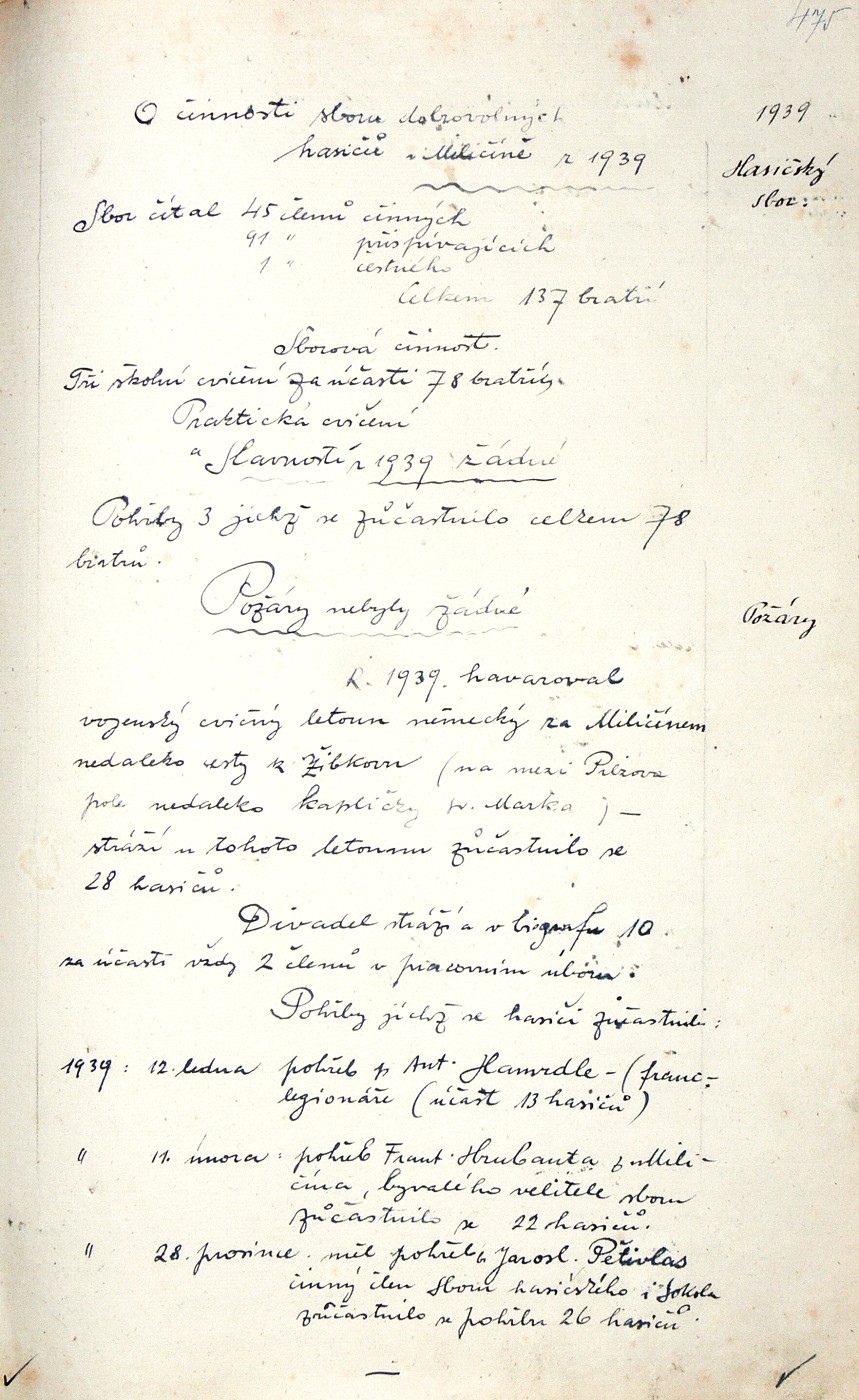 475
O činnosti sboru dobrovolných
1939
hasičů v Miličíně r 1939
Hasičský
sbor:
Sbor čítal 45 členů činných
91 " přispívajících
1 " čestného
Celkem 137 bratří
Sborová činnost.
Tři školní cvičení za účasti 78 bratří.
Praktická cvičení
a Slavnosti r 1939 žádné
Pohřby 3 jichž se zůčastnilo celkem 78
bratrů.
Požáry nebyly žádné
Požáry
R. 1939. havaroval
vojenský cvičný letoun německý za Miličínem
nedaleko cesty k Žibkovu (na mezi
pole nedaleko kapličky sv. Marka) —
stráží u tohoto letounu zůčastnilo se
28 hasičů.
Divadel stráží a v biografu 10.
za účasti vždy 2 členů v pracovním úboru.
Pohřby jichž se hasiči zůčastnili:
1939: 12. ledna pohřeb p Ant. Hamrdle - (franc-
legionáře (účast 13 hasičů)
" 11. února: pohřeb Frant. Hrubanta z Mili-
čína, bývalého velitele sboru
zůčastnilo se 22 hasičů.
" 28. prosince. měl pohřeb Jarosl. Pětivlas
činný člen sboru hasičského i Sokola
zůčastnilo se pohřbu 26 hasičů.